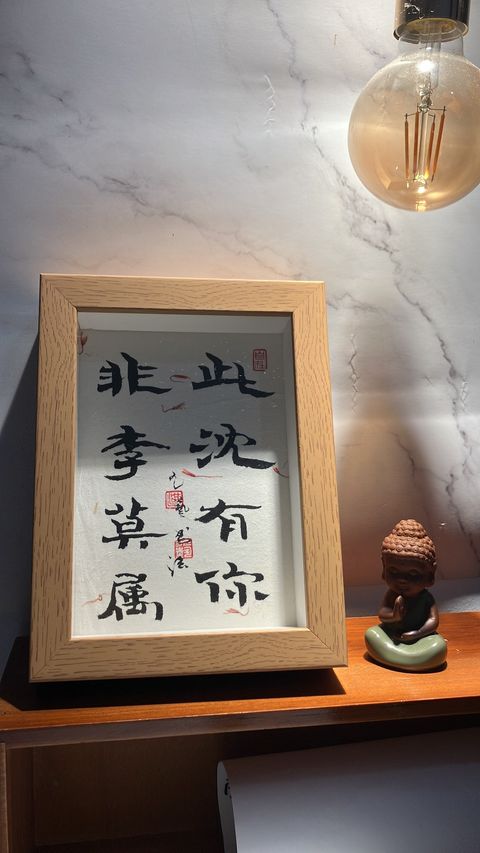 此沈有你
非李莫属